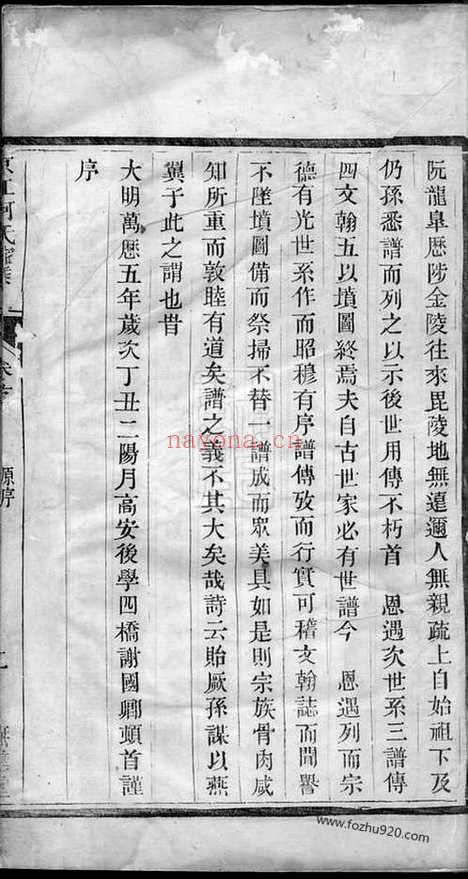 阮龍皐歴陟金陵往來毘陵地無遠邇人無親疏上自始祖下及
仍孫悉譜而列之以示後世用傳不朽首 恩遇次世系三譜傳
四文翰五以墳圖終焉夫自古世家必有世譜今 恩遇列而宗
德有光世系作而昭穆有序譜傳攷而行實可稽文翰誌而聞譽
不墜墳圖備而祭掃不替一譜成而眾美具如是則宗族骨肉咸
知所重而敦睦有道矣譜之義不其大矣哉詩云貽厥孫謀以燕
翼子此之謂也旹
大明萬歷五年歲次丁丑二陽月高安後學四橋謝國卿頓首謹
序
源序
nayona.cn
www.fozhu920.com